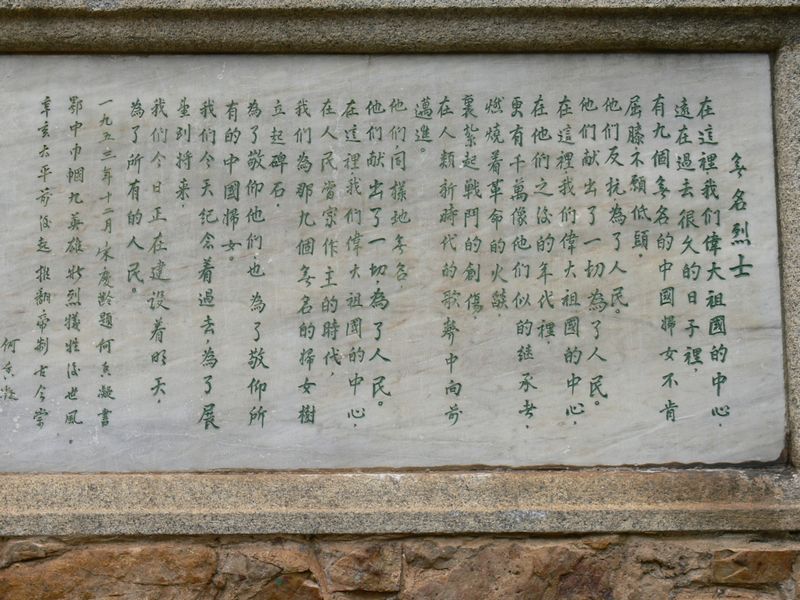 無名烈士
在這裡我们偉大祖國的中心，
遠在過去很久的日子裡，
有九個無名的中國婦女不肯
屈膝，不願低頭，
他们反抗，為了人民。
他们献出了一切，為了人民。
在這裡，我们偉大祖國的中心，
在他们之後的年代裡，
更有千萬像他们似的继承者，
燃燒着革命的火燄，
裹紮起戰鬥的創傷，
在人類新時代的歌聲中向前
邁進。
他们，同樣地無名
他们献出了一切，為了人民。
在這裡，我们偉大祖國的中心，
在人民當家作主的時代，
我们為那九個無名的婦女樹
立起碑石，
為了敬仰他们，也為了敬仰所
有的中國婦女。
我们今天纪念着過去，為了展
望到將来，
我们今日正在建設着明天，
為了所有的人民。
一九五三年十二月宋慶齡題何香凝書
鄂中巾幗九英雄壯烈犧牲後世風。
辛亥太平前後起推翻帝制古今崇
何香凝